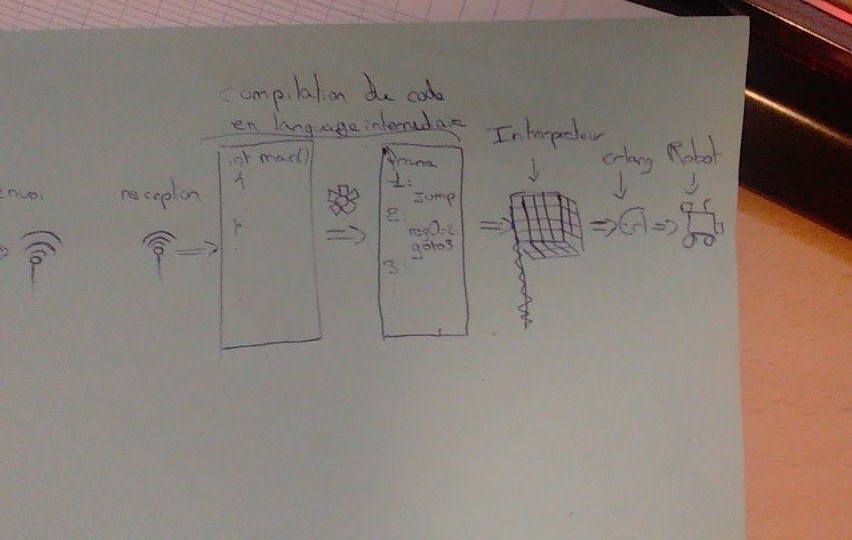 compilation de code
en language intermediaire
envoi
reception
int main()
{
}
1:
Jump
2:
reg0=2
goto3
3
Interpreteur
erlang
Robot